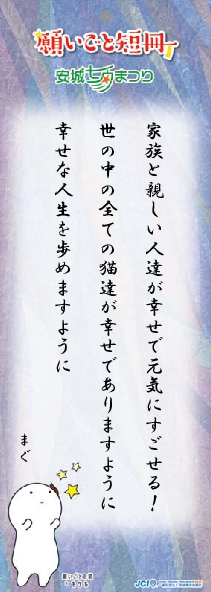 願いごと短冊
安城七夕まつり
家族と親しい人達が幸せで元気にすごせる！
世の中の全ての猫達が幸せでありますように
幸せな人生を歩めますように
まぐ
JCI